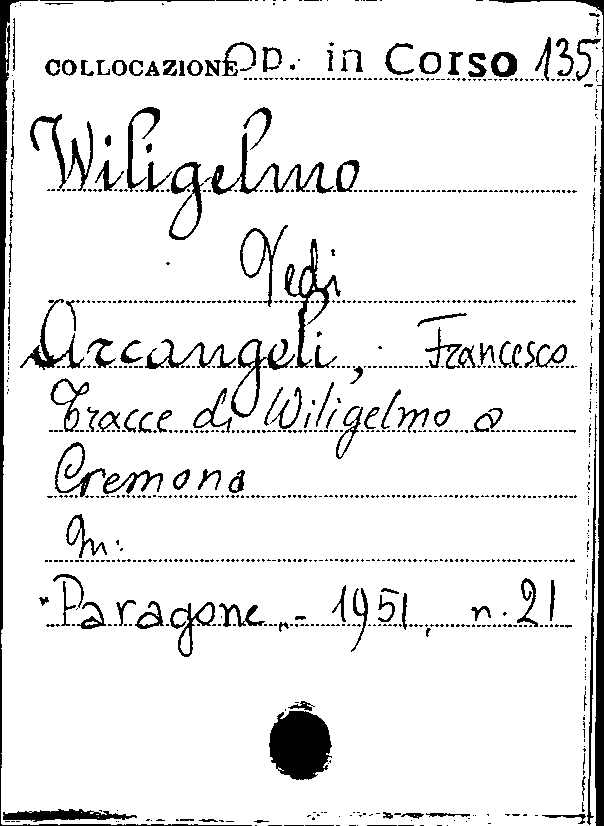 COLLOCAZIONE Op. in Corso 135
Wiligelmo
Vedi
Arcangeli, Francesco
Tracce di Wiligelmo a
Cremona
In:
"Paragone„ - 1951, n. 21